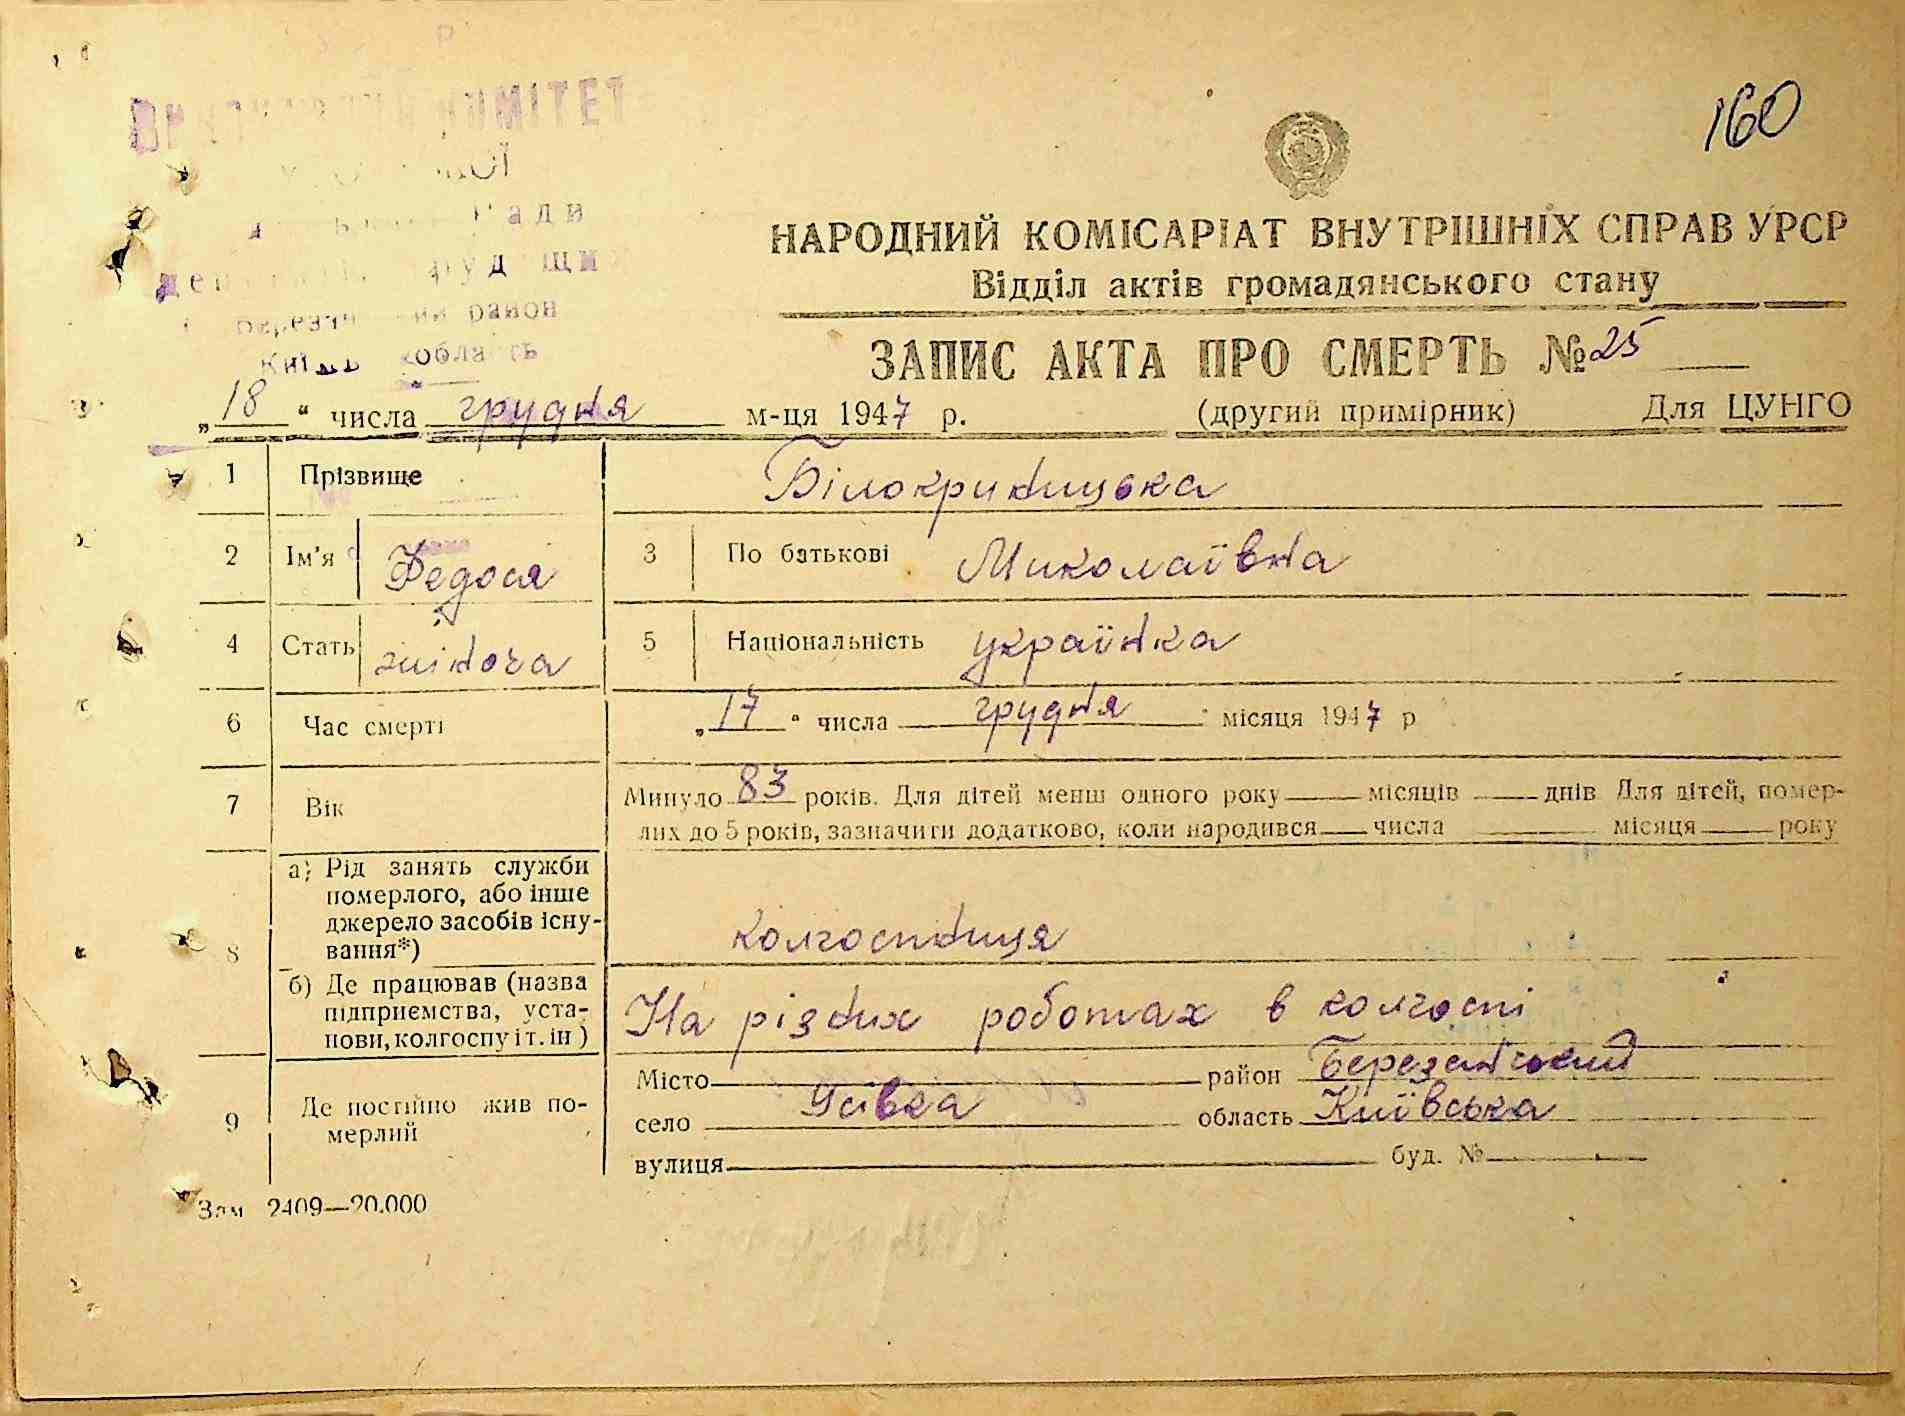 160
КОМІТЕТ
Ради
район
область
НАРОДНИЙ КОМІСАРІАТ ВНУТРІШНІХ СПРАВ УРСР
Відділ актів громадянського стану
ЗАПИС АКТА ПРО СМЕРТЬ № 25
„ 18 “ числа грудня м-ця 1947 р. (другий примірник) Для ЦУНГО
1 Прізвище Білокриницька
2 Ім'я Федося 3 По батькові Миколаївна
4 Стать жіноча 5 Національність українка
6 Час смерті „ 17 “ числа грудня місяця 1947 р
7 Вік Минуло 83 років. Для дітей менш одного року місяців днів Для дітей, помер-
лих до 5 років, зазначити додатково, коли народився числа місяця року
8 а) Рід занять служби
померлого, або інше
джерело засобів існу-
вання*) колгоспниця
б) Де працював (назва
підприємства, уста-
нови, колгоспу і т. ін) На різних роботах в колгоспі
9 Де постійно жив по-
мерлий
Місто район Березанський
село Усівка область Київська
вулиця буд. №
Зам 2409—20.000